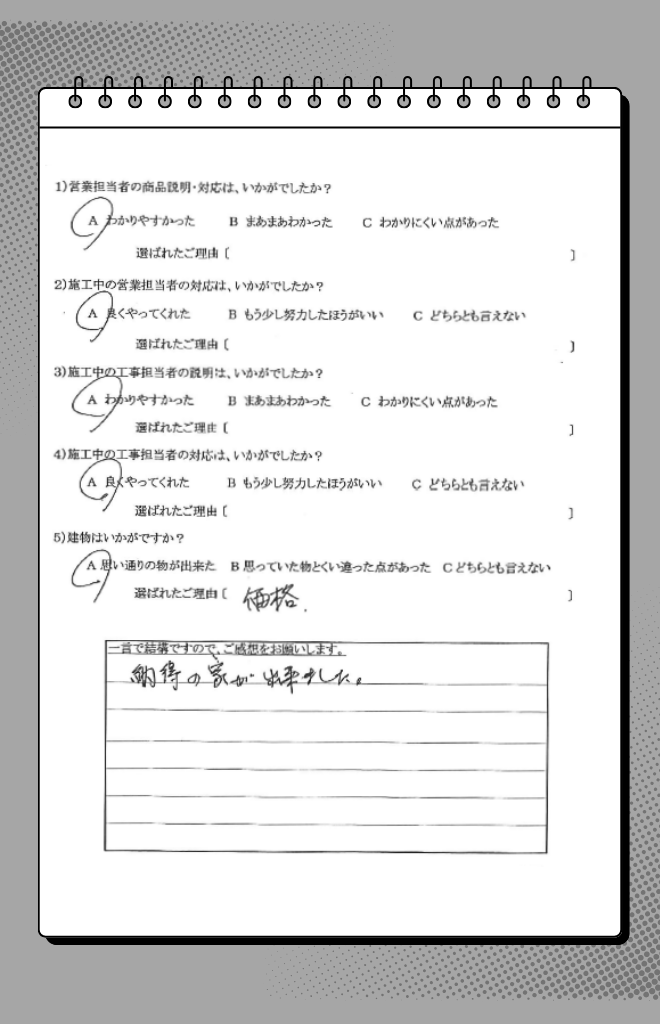 1)営業担当者の商品説明・対応は、いかがでしたか？
A わかりやすかった B まあまあわかった C わかりにくい点があった
選ばれたご理由〔 〕
2)施工中の営業担当者の対応は、いかがでしたか？
A 良くやってくれた B もう少し努力したほうがいい C どちらとも言えない
選ばれたご理由〔 〕
3)施工中の工事担当者の説明は、いかがでしたか？
A わかりやすかった B まあまあわかった C わかりにくい点があった
選ばれたご理由〔 〕
4)施工中の工事担当者の対応は、いかがでしたか？
A 良くやってくれた B もう少し努力したほうがいい C どちらとも言えない
選ばれたご理由〔 〕
5)建物はいかがですか？
A 思い通りの物が出来た B 思っていた物とくい違った点があった C どちらとも言えない
選ばれたご理由〔 価格. 〕
一言で結構ですので、ご感想をお願いします。
納得の家が出来ました。